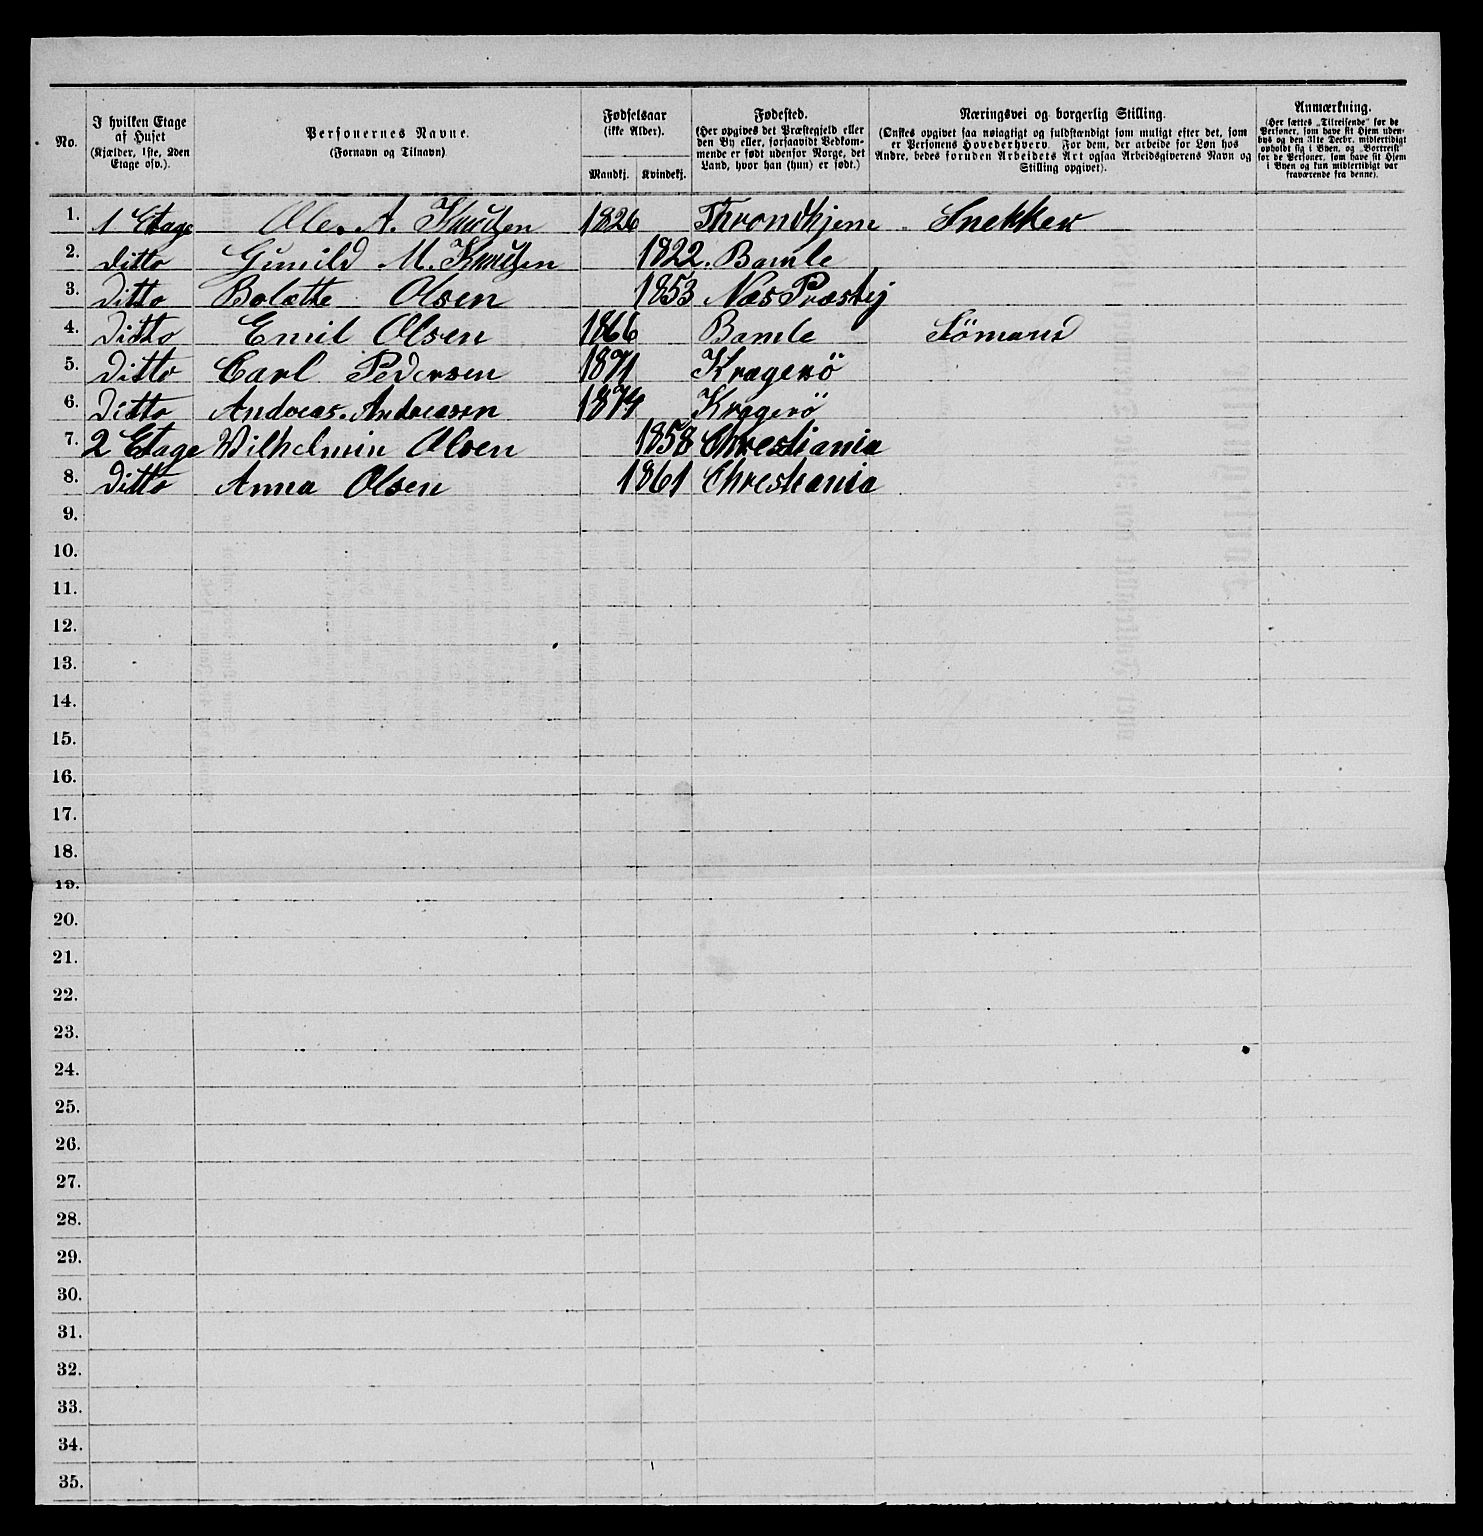 No.
I hvilken Etage af Huset (Kjælder, 1ste, 2den Etage osv.)
Personernes Navne. (Fornavn og Tilnavn)
Fødselsaar (ikke Alder). Mandkj. Kvindekj.
Fødested. (Her opgives det Præstegjeld eller den By eller, forsaavidt Vedkommende er født udenfor Norge, det Land, hvor han (hun) er født.)
Næringsvei og borgerlig Stilling. (Ønskes opgivet saa nøiagtigt og fuldstændigt som muligt efter det, som er Personens Hovederhverv. For dem, der arbeide for Løn hos Andre, bedes foruden Arbeidets Art ogsaa Arbeidsgiverens Navn og Stilling opgivet).
Anmærkning. (Her sættes „Tilreisende" for de Personer, som have sit Hjem udenbys og den 31te Decbr. midlertidigt opholdt sig i Byen, og „Bortreist" for de Personer, som have sit Hjem i Byen og kun midlertidigt var fraværende fra denne).
1. 1 Etage Ole. A. Knudsen 1826 Throndhjem Snekker
2. ditto Gunild M. Knudsen 1822. Bamle
3. Ditto Bolette Olsen 1853 Næs Præstej
4. Ditto Emil Olsen 1866 Bamle Sömand
5. Ditto Carl Pedersen 1871 Kragerö
6. Ditto Andreas. Andreasen 1874 Kragerö
7. 2 Etage Wilhelmin Olsen 1858 Christiania
8. Ditto Anna Olsen 1861 Christiania
9.
10.
11.
12.
13.
14.
15.
16.
17.
18.
19.
20.
21.
22.
23.
24.
25.
26.
27.
28.
29.
30.
31.
32.
33.
34.
35.